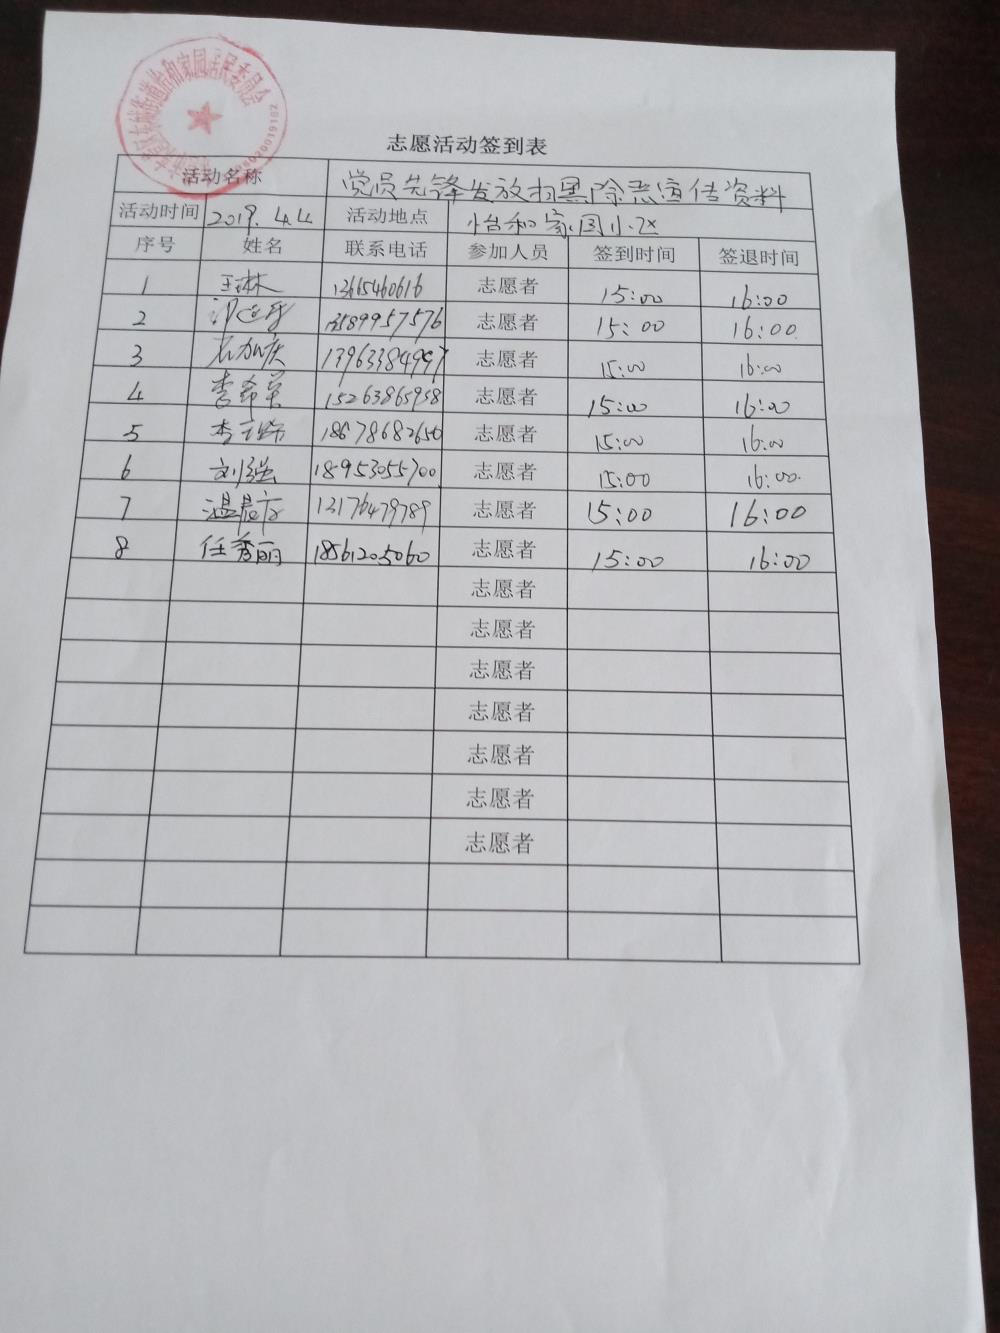 街道怡和家园居民委员会
志愿活动签到表
活动名称 党员先锋发放扫黑除恶宣传资料
活动时间 2019.4.4 活动地点 怡和家园小区
序号 姓名 联系电话 参加人员 签到时间 签退时间
1 王琳 13615460616 志愿者 15:00 16:00
2 13589957576 志愿者 15:00 16:00
3 13963384997 志愿者 15:00 16:00
4 李希军 15263865958 志愿者 15:00 16:00
5 李 18678682650 志愿者 15:00 16:00
6 刘强 18953055700 志愿者 15:00 16:00.
7 温 13176479789 志愿者 15:00 16:00
8 任秀丽 18561205060 志愿者 15:00 16:00
志愿者
志愿者
志愿者
志愿者
志愿者
志愿者
志愿者